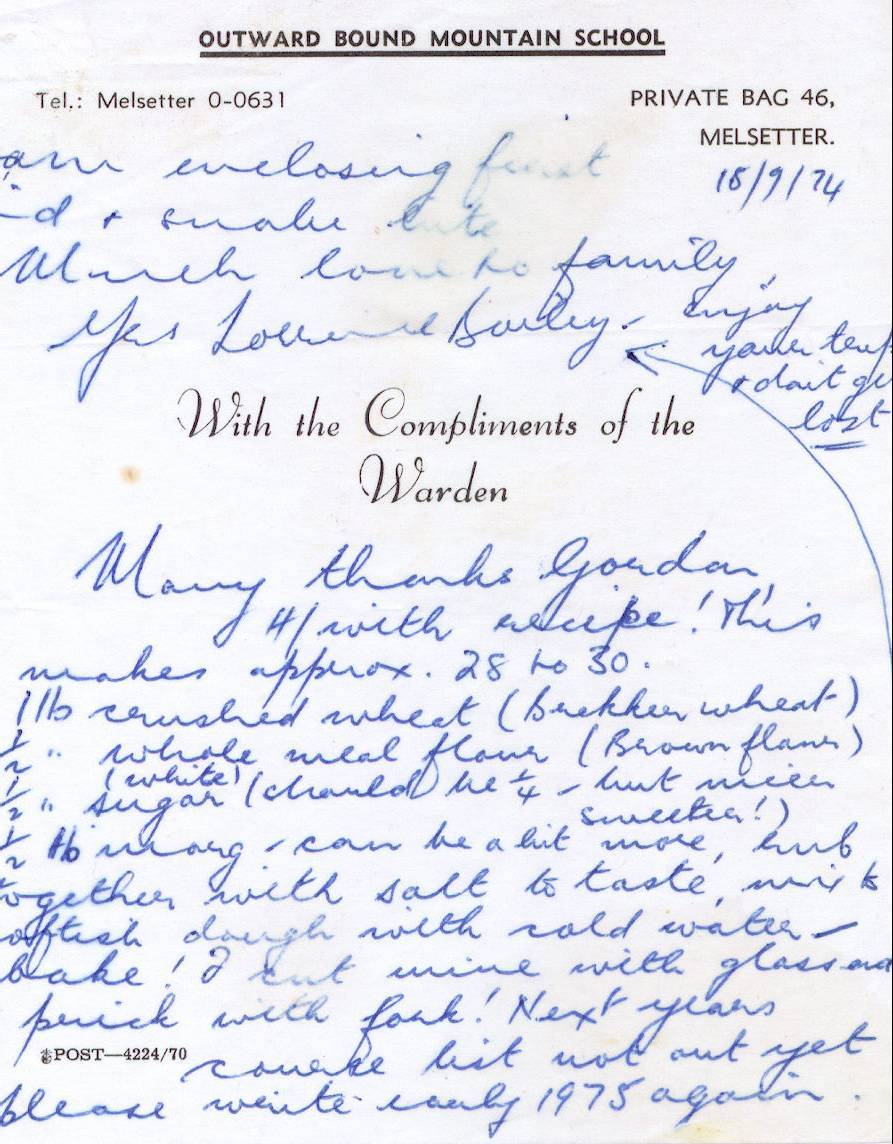 OUTWARD BOUND MOUNTAIN SCHOOL
Tel.: Melsetter 0-0631
PRIVATE BAG 46,
MELSETTER.
18/9/74
am enclosing first
d + snake bite
Much love to family,
Bailey - enjoy
your
+ don't
lost
With the Compliments of the
Warden
Many thanks Gordon,
H/with recipe! This
makes approx. 28 to 30.
1 lb crushed wheat (Brekker wheat)
1/2 " whole meal flour (Brown flour)
(white)
1/2 " sugar (should be 1/4 - but nicer
sweeter!)
1/2 lb marg - can be a bit more, rub
together with salt to taste, mix to
oftish dough with cold water -
bake! I cut mine with glass and
prick with fork! Next years
POST—4224/70
course list not out yet
please write early 1975 again.